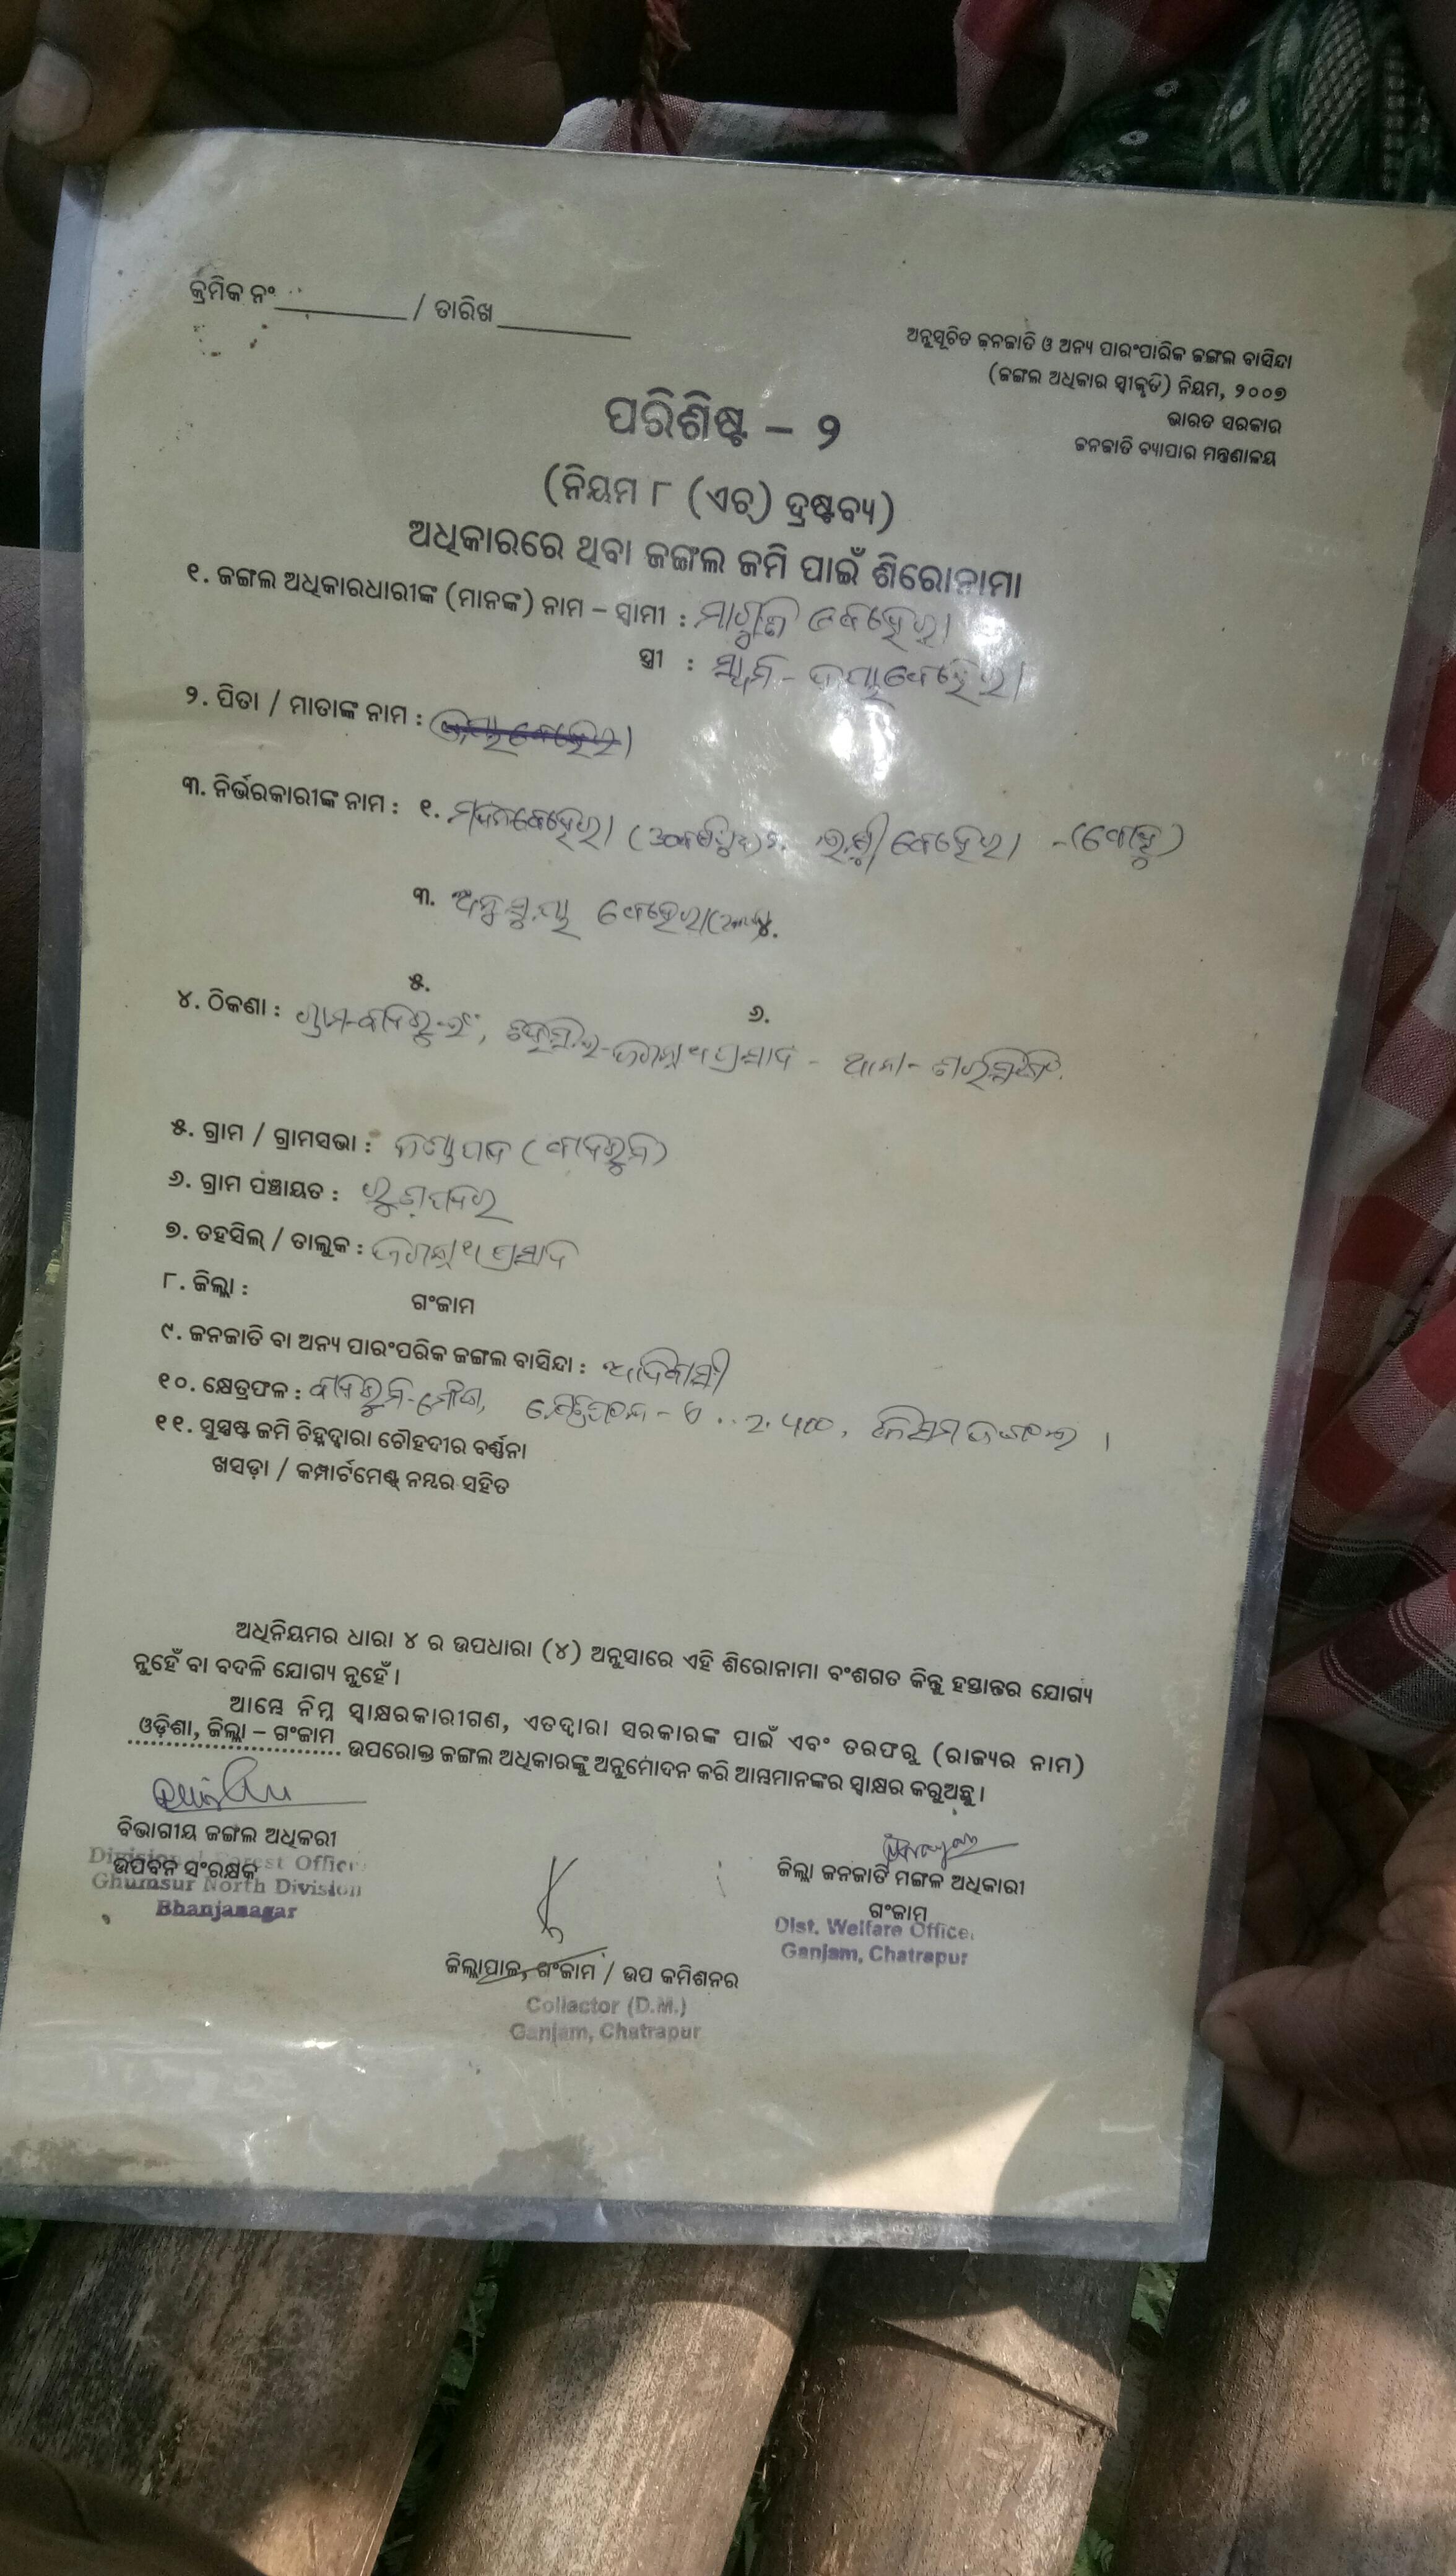 କ୍ରମିକ ନଂ __________ / ତାରିଖ __________
ଅନୁସୂଚିତ ଜନଜାତି ଓ ଅନ୍ୟ ପାରଂପାରିକ ଜଙ୍ଗଲ ବାସିନ୍ଦା
(ଜଙ୍ଗଲ ଅଧିକାର ସ୍ୱୀକୃତି) ନିୟମ, ୨୦୦୭
ଭାରତ ସରକାର
ଜନଜାତି ବ୍ୟାପାର ମନ୍ତ୍ରଣାଳୟ
ପରିଶିଷ୍ଟ – ୨
(ନିୟମ ୮ (ଏଚ୍) ଦ୍ରଷ୍ଟବ୍ୟ)
ଅଧିକାରରେ ଥିବା ଜଙ୍ଗଲ ଜମି ପାଇଁ ଶିରୋନାମା
୧. ଜଙ୍ଗଲ ଅଧିକାରଧାରୀଙ୍କ (ମାନଙ୍କ) ନାମ – ସ୍ୱାମୀ : ମାଗୁଣି ବେହେରା
ସ୍ତ୍ରୀ : ବେହେରା
୨. ପିତା / ମାତାଙ୍କ ନାମ :
୩. ନିର୍ଭରକାରୀଙ୍କ ନାମ : ୧. ମଦନ ବେହେରା ୨. ଲକ୍ଷ୍ମୀ ବେହେରା - (ବୋହୂ)
୩. ଅନୁସୂୟା ବେହେରା ୪.
୫. ୬.
୪. ଠିକଣା : ଗ୍ରାମ- ତହସିଲ-ଜଗନ୍ନାଥ ପ୍ରସାଦ - ଥାନା-
୫. ଗ୍ରାମ / ଗ୍ରାମସଭା :
୬. ଗ୍ରାମ ପଞ୍ଚାୟତ :
୭. ତହସିଲ୍ / ତାଲୁକ : ଜଗନ୍ନାଥ ପ୍ରସାଦ
୮. ଜିଲ୍ଲା : ଗଂଜାମ
୯. ଜନଜାତି ବା ଅନ୍ୟ ପାରଂପରିକ ଜଙ୍ଗଲ ବାସିନ୍ଦା : ଆଦିବାସୀ
୧୦. କ୍ଷେତ୍ରଫଳ : ମୌଜା, କିସମ ଜଙ୍ଗଲ ।
୧୧. ସୁସ୍ପଷ୍ଟ ଜମି ଚିହ୍ନଦ୍ୱାରା ଚୌହଦୀର ବର୍ଣ୍ଣନା
ଖସଡ଼ା / କମ୍ପାର୍ଟମେଣ୍ଟ୍ ନମ୍ବର ସହିତ
ଅଧିନିୟମର ଧାରା ୪ ର ଉପଧାରା (୪) ଅନୁସାରେ ଏହି ଶିରୋନାମା ବଂଶଗତ କିନ୍ତୁ ହସ୍ତାନ୍ତର ଯୋଗ୍ୟ
ନୁହେଁ ବା ବଦଳି ଯୋଗ୍ୟ ନୁହେଁ ।
ଆମ୍ଭେ ନିମ୍ନ ସ୍ୱାକ୍ଷରକାରୀଗଣ, ଏତଦ୍ୱାରା ସରକାରଙ୍କ ପାଇଁ ଏବଂ ତରଫରୁ (ରାଜ୍ୟର ନାମ)
ଓଡ଼ିଶା, ଜିଲ୍ଲା – ଗଂଜାମ ଉପରୋକ୍ତ ଜଙ୍ଗଲ ଅଧିକାରଙ୍କୁ ଅନୁମୋଦନ କରି ଆମ୍ଭମାନଙ୍କର ସ୍ୱାକ୍ଷର କରୁଅଛୁ ।
ବିଭାଗୀୟ ଜଙ୍ଗଲ ଅଧିକାରୀ
ଉପବନ ସଂରକ୍ଷକ
Divisional Forest Officer
Ghumsur North Division
Bhanjanagar
ଜିଲ୍ଲା ଜନଜାତି ମଙ୍ଗଳ ଅଧିକାରୀ
ଗଂଜାମ
Dist. Welfare Officer
Ganjam, Chatrapur
ଜିଲ୍ଲାପାଳ, ଗଂଜାମ / ଉପ କମିଶନର
Collector (D.M.)
Ganjam, Chatrapur